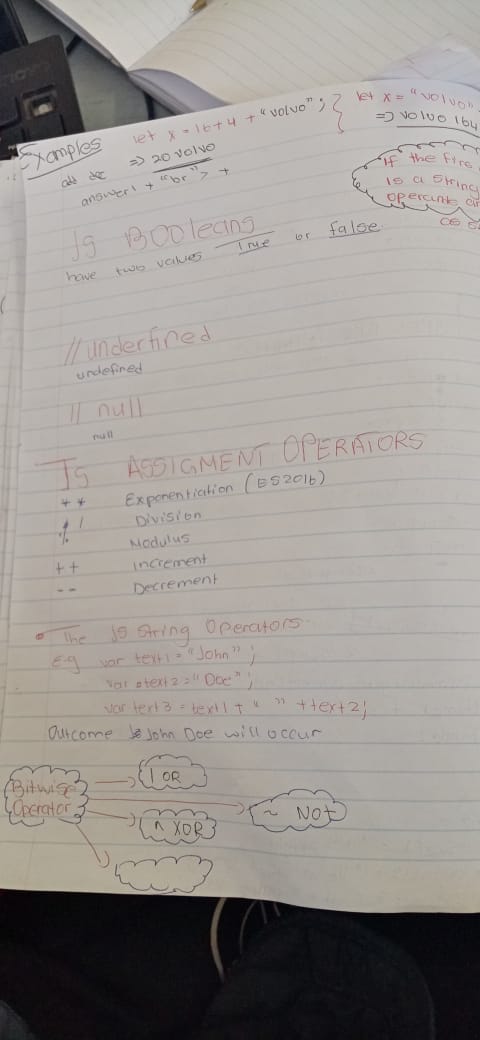 Examples
let x = 16+4 + "volvo";
=> 20 volvo
let x = "volvo"
=> volvo 164
answer1 + "br" > +
If the
is a String
operants
Js Booleans
have two values True or false.
// underfined
undefined
// null
null
Js ASSIGMENT OPERATORS
** Exponentiation (ES2016)
/ Division
% Modulus
++ Increment
-- Decrement
• The JS String Operators.
E.g var text1 = "John";
var text2 = "Doe";
var text3 = text1 + " " + text2;
Outcome John Doe will occur
Bitwise
Operator
| OR
~ NOT
^ XOR